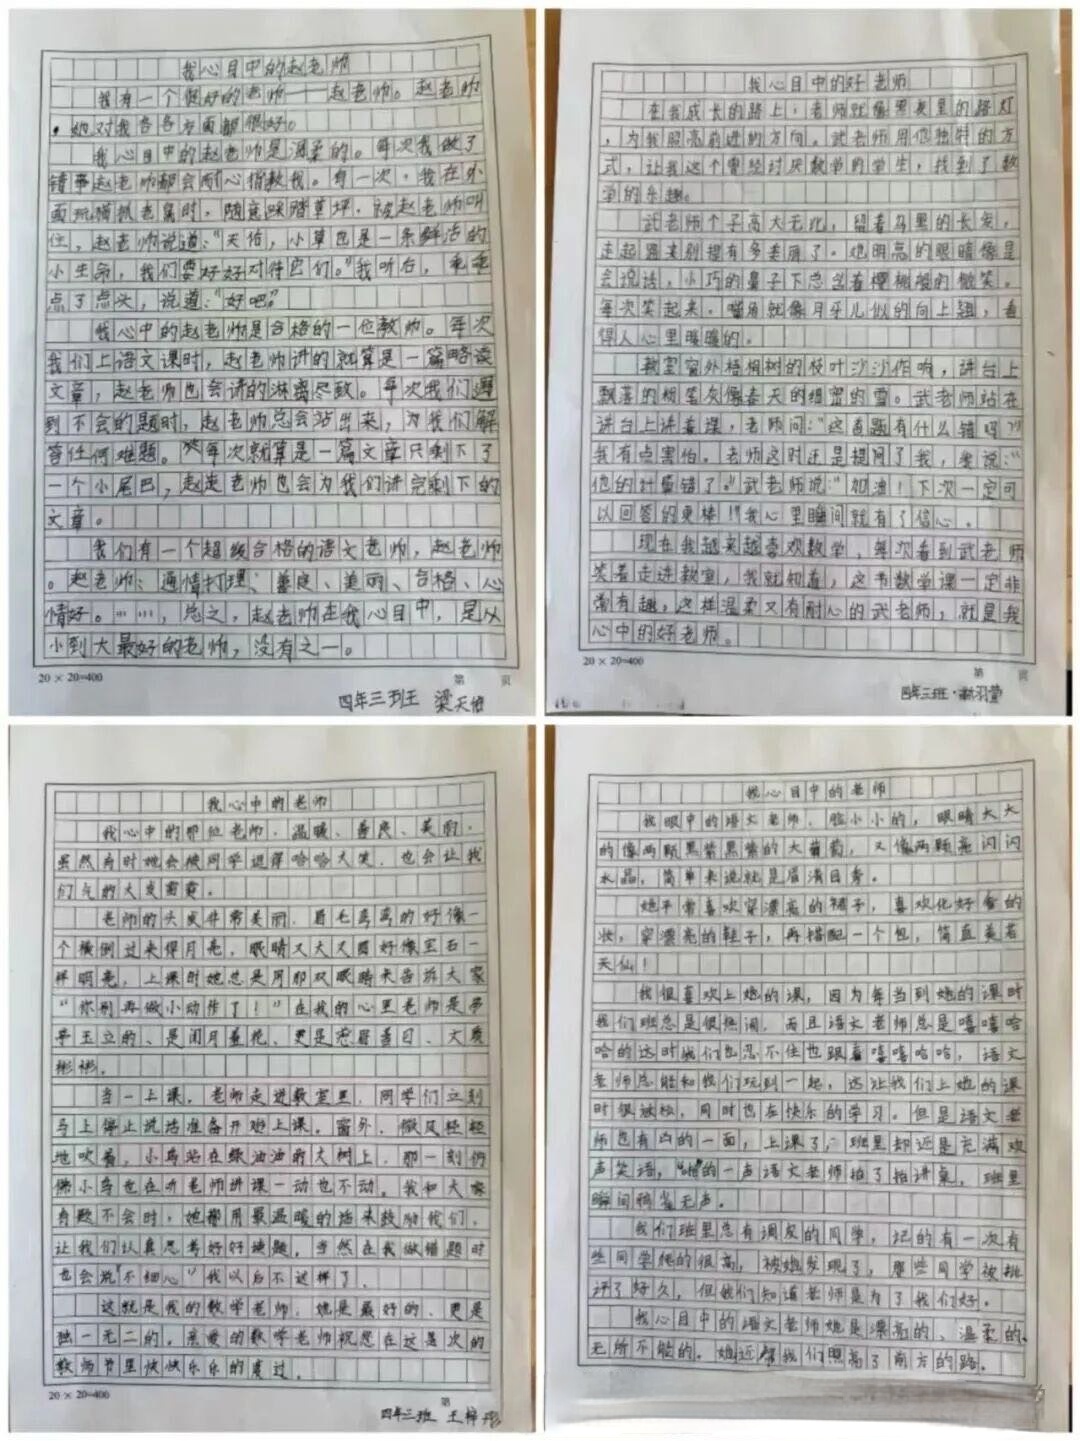 我心目中的赵老师
我有一个很好的老师——赵老师。赵老师
，她对我各各方面都很好。
我心目中的赵老师是温柔的。每次我做了
错事赵老师都会耐心指教我。有一次，我在外
面玩猫抓老鼠时，随意踩踏草坪，被赵老师叫
住，赵老师说道：“天佑，小草也是一条鲜活的
小生命，我们要好好对待它们。”我听后，乖乖
点了点头，说道：“好吧。”
我心中的赵老师是合格的一位教师。每次
我们上语文课时，赵老师讲的就算是一篇略读
文章，赵老师也会讲的淋漓尽致。每次我们遇
到不会的题时，赵老师总会站出来，为我们解
答任何难题。每次就算是一篇文章只剩下了
一个小尾巴，赵老师也会为我们讲完剩下的
文章。
我们有一个超级合格的语文老师，赵老师
。赵老师：通情打理、善良、美丽、合格、心
情好。……，总之，赵老师在我心目中，是从
小到大最好的老师，没有之一。
20×20=400 第 页
四年三班 梁天佑
我心目中的好老师
在我成长的路上，老师就像黑夜里的路灯
，为我照亮前进的方向。武老师用他独特的方
式，让我这个曾经讨厌数学的学生，找到了数
学的乐趣。
武老师个子高大无比，留着乌黑的长发，
走起路来别提有多美丽了。她明亮的眼睛像是
会说话，小巧的鼻子下总含着樱桃般的微笑。
每次笑起来，嘴角就像月牙儿似的向上翘，看
得人心里暖暖的。
教室窗外梧桐树的枝叶沙沙作响，讲台上
飘落的粉笔灰像春天的细密的雪。武老师站在
讲台上讲着课，老师问：“这道题有什么错吗？”
我有点害怕。老师这时还是提问了我，我说：“
他的计量错了。”武老师说：“加油！下次一定可
以回答的更棒！”我心里瞬间就有了信心。
现在我越来越喜欢数学，每次看到武老师
笑着走进教室，我就知道，这节数学课一定非
常有趣，这样温柔又有耐心的武老师，就是我
心中的好老师。
20×20=400 第 页
四年三班
我心中的老师
我心中的那位老师，温暖、善良、美丽，
虽然有时她会被同学逗得哈哈大笑，也会让我
们气的大发雷霆。
老师的头发非常美丽，眉毛弯弯的好像一
个横倒过来得月亮，眼睛又大又圆好像宝石一
样明亮，上课时她总是用那双眼睛来告诉大家
“你别再做小动作了！”在我的心里老师是亭
亭玉立的、是闭月羞花、更是慈眉善目、文质
彬彬。
当一上课，老师走进教室里，同学们立刻
马上停止说话准备开始上课。窗外，微风轻轻
地吹着，小鸟站在绿油油的大树上，那一刻仿
佛小鸟也在听老师讲课一动也不动。我和大家
有题不会时，她都用最温暖的话来鼓励我们，
让我们认真思考好好读题。当然在我做错题时
也会说“不细心”我以后不这样了。
这就是我的数学老师，她是最好的、更是
独一无二的。亲爱的数学老师祝您在这是次的
教师节里快快乐乐的度过。
20×20=400 第
四年三班 王梓
我心目中的老师
我眼中的语文老师，脸小小的，眼睛大大
的像两颗黑紫黑紫的大葡萄，又像两颗亮闪闪
水晶，简单来说就是眉清目秀。
她平常喜欢穿漂亮的裙子，喜欢化好看的
妆，穿漂亮的鞋子，再搭配一个包，简直美若
天仙！
我很喜欢上她的课，因为每当到她的课时
我们班总是很热闹，而且语文老师总是嘻嘻哈
哈的这时我们也忍不住也跟着嘻嘻哈哈，语文
老师总能和我们玩到一起，这让我们上她的课
时很放松，同时也在快乐的学习。但是语文老
师也有凶的一面，上课了，班里却还是充满欢
声笑语，“啪”的一声语文老师拍了拍讲桌，班里
瞬间鸦雀无声。
我们班里总有调皮的同学，记的有一次有
些同学爬的很高，被她发现了，那些同学被批
评了好久，但我们知道老师是为了我们好。
我心目中的语文老师她是漂亮的、温柔的、
无所不能的。她还帮我们照亮了前方的路。